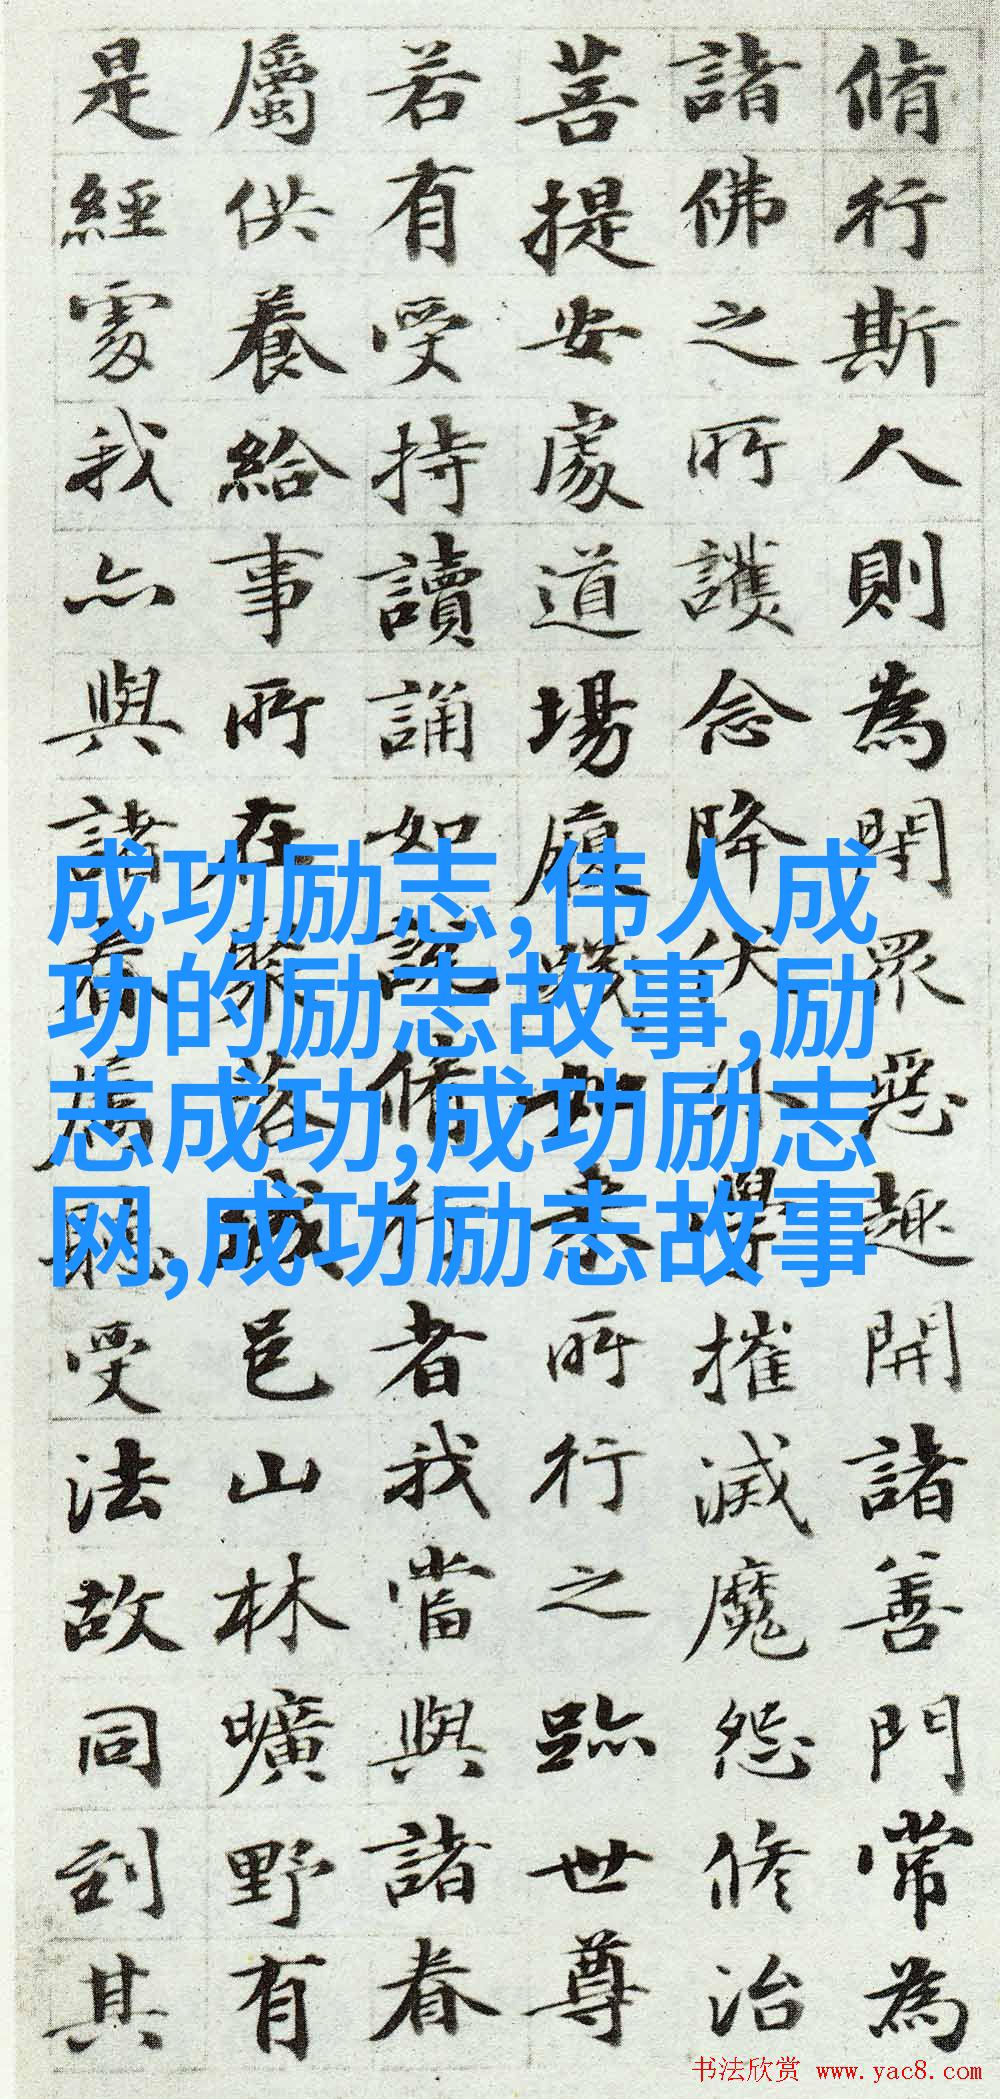 脩行斯人則為閉眾惡趣開諸善門常為
諸佛之所護念降伏外學摧滅魔怨修治
菩提安處道場履踐如來所行之跡世尊
若有受持讀誦如說脩行者我當與諸眷
屬供養給事所在聚落城邑山林曠野有
是經處我亦與諸眷屬聽受法故同到其
成功励志,伟人成
功的励志故事,励
志成功,成功励志
网,成功励志故事
书法欣赏 www.yac8.com